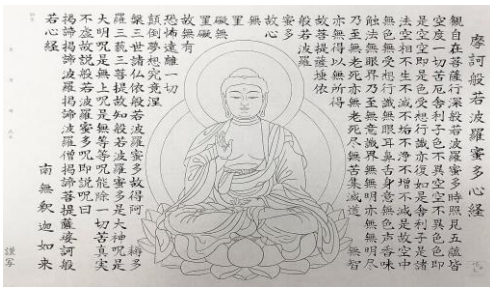 摩訶般若波羅蜜多心経
観自在菩薩行深般若波羅蜜多時照見五蘊皆
空度一切苦厄舎利子色不異空空不異色色即
是空空即是色受想行識亦復如是舎利子是諸
法空相不生不滅不垢不浄不増不減是故空中
無色無受想行識無眼耳鼻舌身意無色声香味
触法無眼界乃至無意識界無無明亦無無明尽
乃至無老死亦無老死尽無苦集滅道 無智
亦無得以無所得
故菩提薩埵依
般若波羅
蜜多
故心
無
罣
礙無
罣礙
故無有
恐怖遠離一切
顛倒夢想究竟涅
槃三世諸仏依般若波羅蜜多故得阿 耨多
羅三藐三菩提故知般若波羅蜜多是大神呪是
大明呪是無上呪是無等等呪能除一切苦真実
不虚故説般若波羅蜜多呪即説呪曰
掲諦掲諦波羅掲諦波羅僧掲諦菩提薩婆訶般
若心経
南無釈迦如来
謹写